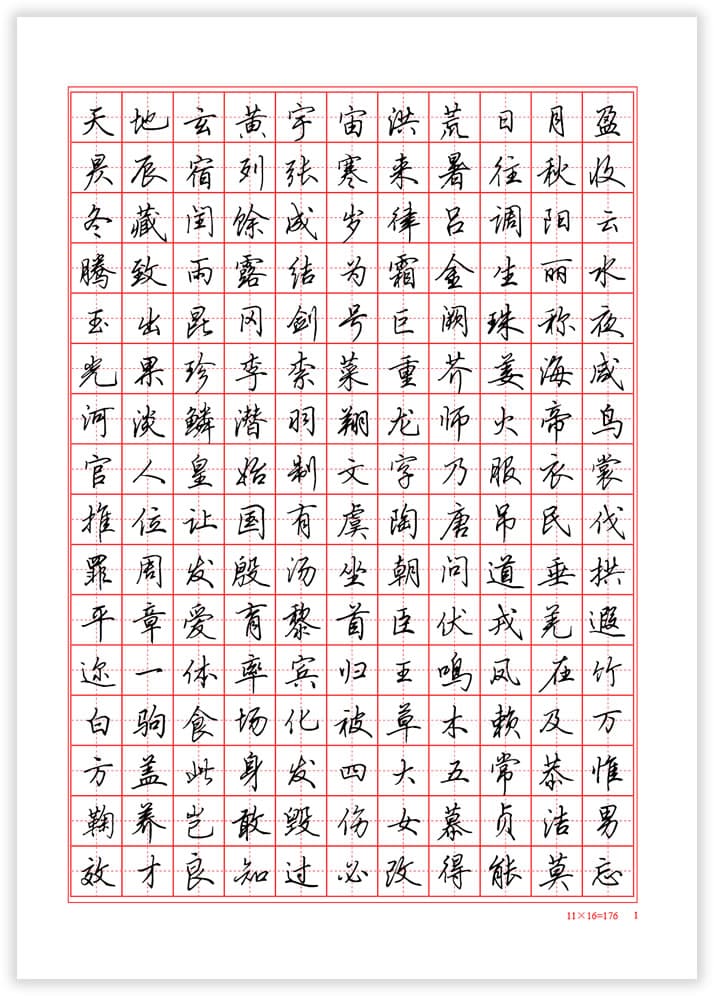 天地玄黄宇宙洪荒日月盈
昃辰宿列张寒来暑往秋收
冬藏闰馀成岁律吕调阳云
腾致雨露结为霜金生丽水
玉出昆冈剑号巨阙珠称夜
光果珍李柰菜重芥姜海咸
河淡鳞潜羽翔龙师火帝鸟
官人皇始制文字乃服衣裳
推位让国有虞陶唐吊民伐
罪周发殷汤坐朝问道垂拱
平章爱育黎首臣伏戎羌遐
迩一体率宾归王鸣凤在竹
白驹食场化被草木赖及万
方盖此身发四大五常恭惟
鞠养岂敢毁伤女慕贞洁男
效才良知过必改得能莫忘
11×16=176 1